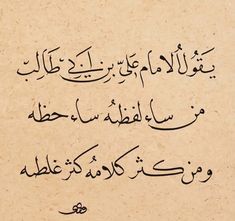 يَقُولُ الامام عَليِّ بن أبي طالب
من ساء لفظه ساء حظه
ومن كثر كلامه كثر غلطه